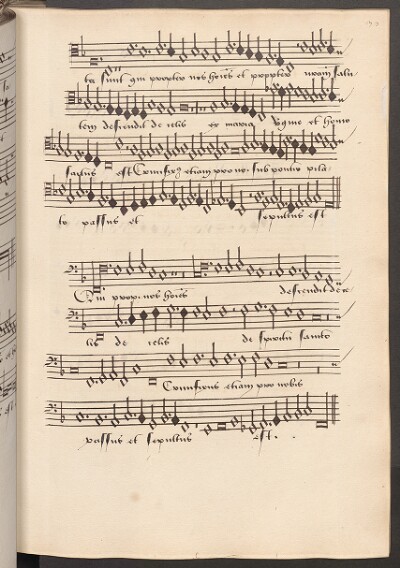 ta sunt qui propter nos hoies et propter nram salu
tem descendit de celis ex maria Virgine et homo
factus est Crucifix9 etiam pro no. sub pontio pila
to passus et sepultus est
Qui prop. nos hoies descendit de ce
lis de celis de spiritu sancto
Crucifixus etiam pro nobis
passus et sepultus est.